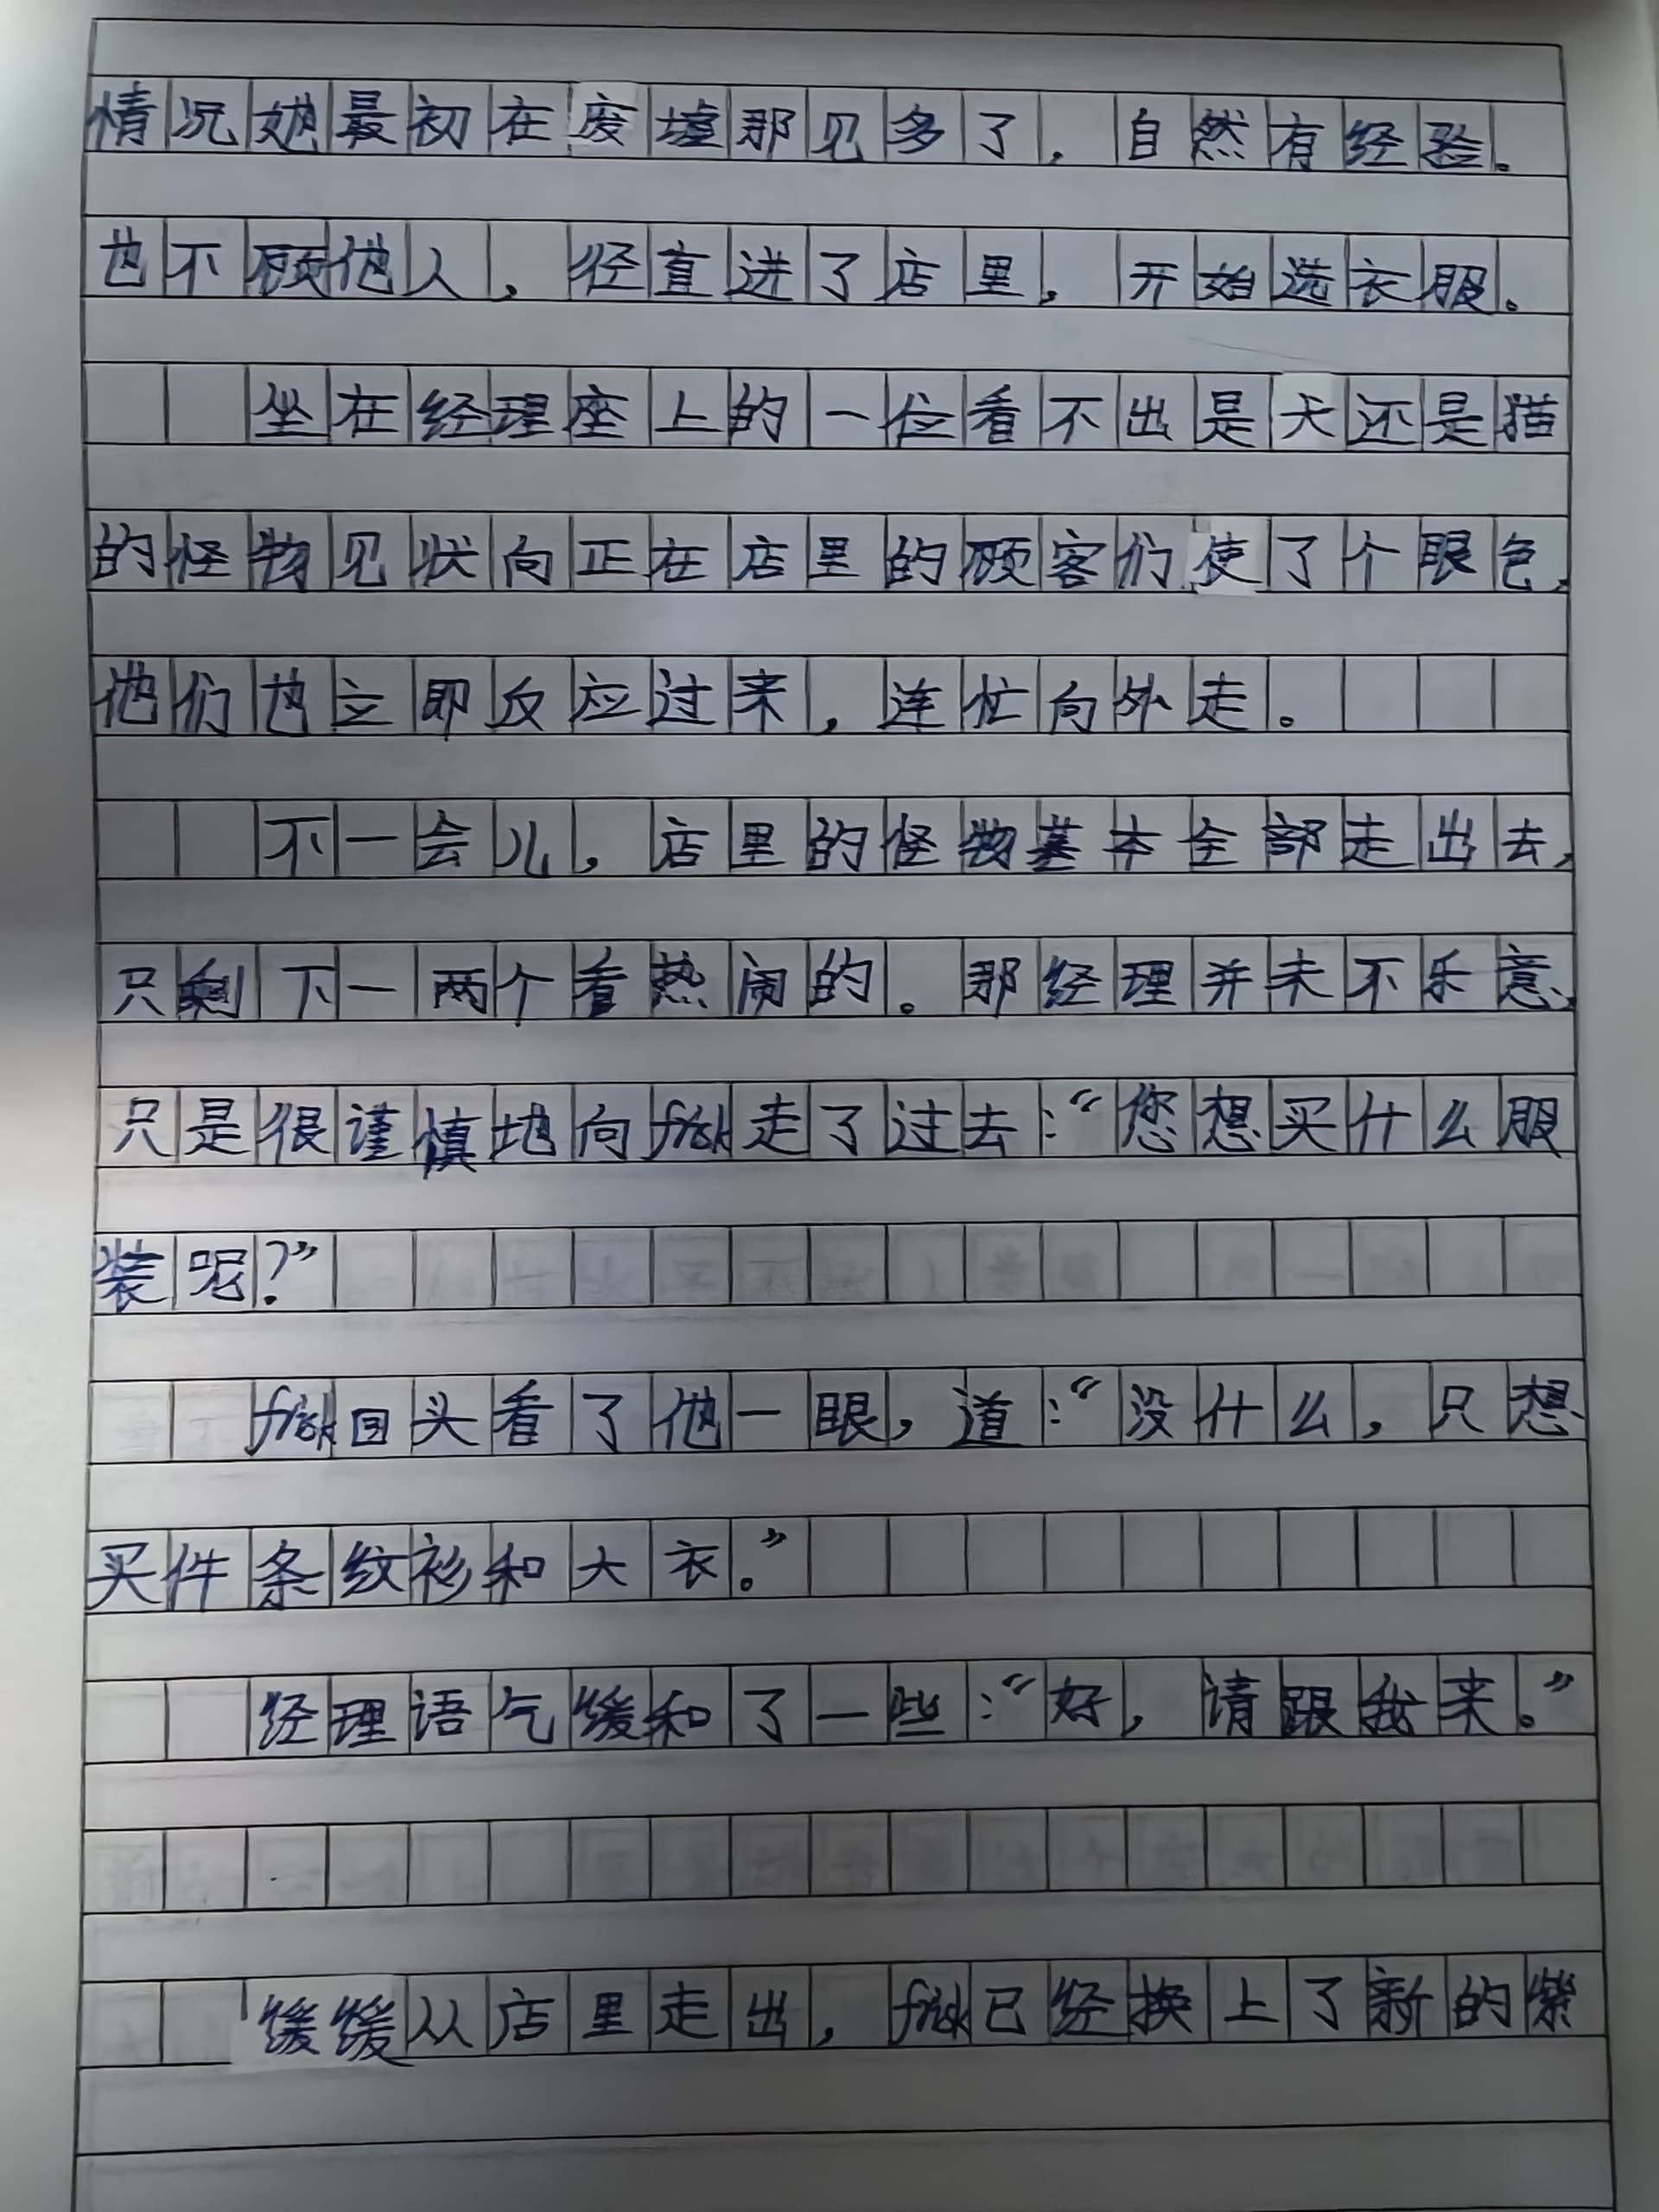 情况她最初在废墟那见多了，自然有经验。
也不顾他人，径直进了店里，开始选衣服。
坐在经理座上的一位看不出是犬还是猫
的怪物见状向正在店里的顾客们使了个眼色，
他们也立即反应过来，连忙向外走。
不一会儿，店里的怪物基本全部走出去，
只剩下一两个看热闹的。那经理并未不乐意，
只是很谨慎地向frisk走了过去：“您想买什么服
装呢？”
frisk回头看了他一眼，道：“没什么，只想
买件条纹衫和大衣。”
经理语气缓和了一些：“好，请跟我来。”
缓缓从店里走出，frisk已经换上了新的紫